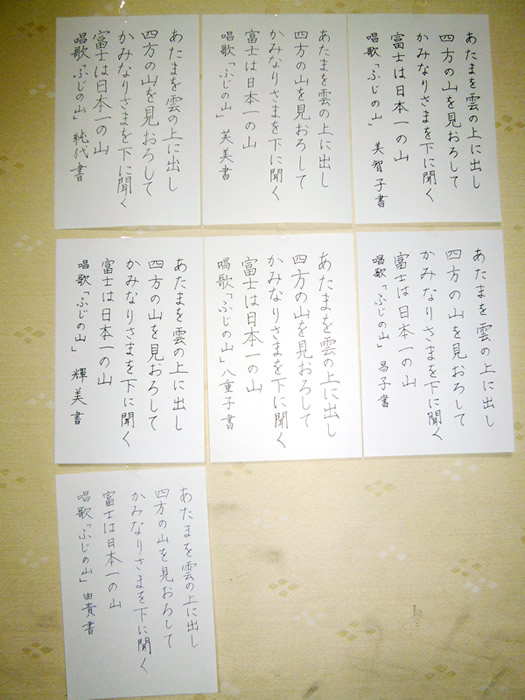 あたまを雲の上に出し
四方の山を見おろして
かみなりさまを下に聞く
富士は日本一の山
唱歌「ふじの山」 美智子書
あたまを雲の上に出し
四方の山を見おろして
かみなりさまを下に聞く
富士は日本一の山
唱歌「ふじの山」 芙美書
あたまを雲の上に出し
四方の山を見おろして
かみなりさまを下に聞く
富士は日本一の山
唱歌「ふじの山」 純代書
あたまを雲の上に出し
四方の山を見おろして
かみなりさまを下に聞く
富士は日本一の山
唱歌「ふじの山」 昌子書
あたまを雲の上に出し
四方の山を見おろして
かみなりさまを下に聞く
富士は日本一の山
唱歌「ふじの山」八重子書
あたまを雲の上に出し
四方の山を見おろして
かみなりさまを下に聞く
富士は日本一の山
唱歌「ふじの山」 輝美書
あたまを雲の上に出し
四方の山を見おろして
かみなりさまを下に聞く
富士は日本一の山
唱歌「ふじの山」由貴書